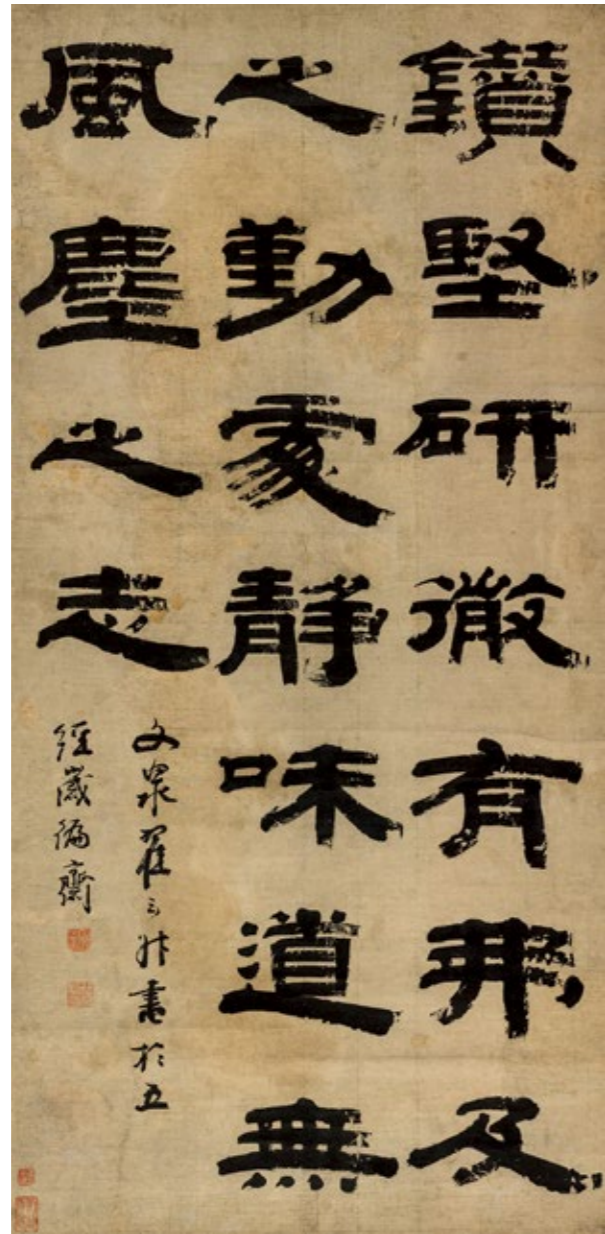 鑽堅研微有弗及
之勤處靜味道無
風塵之志
文泉翟云升書於五
經歲徧齋